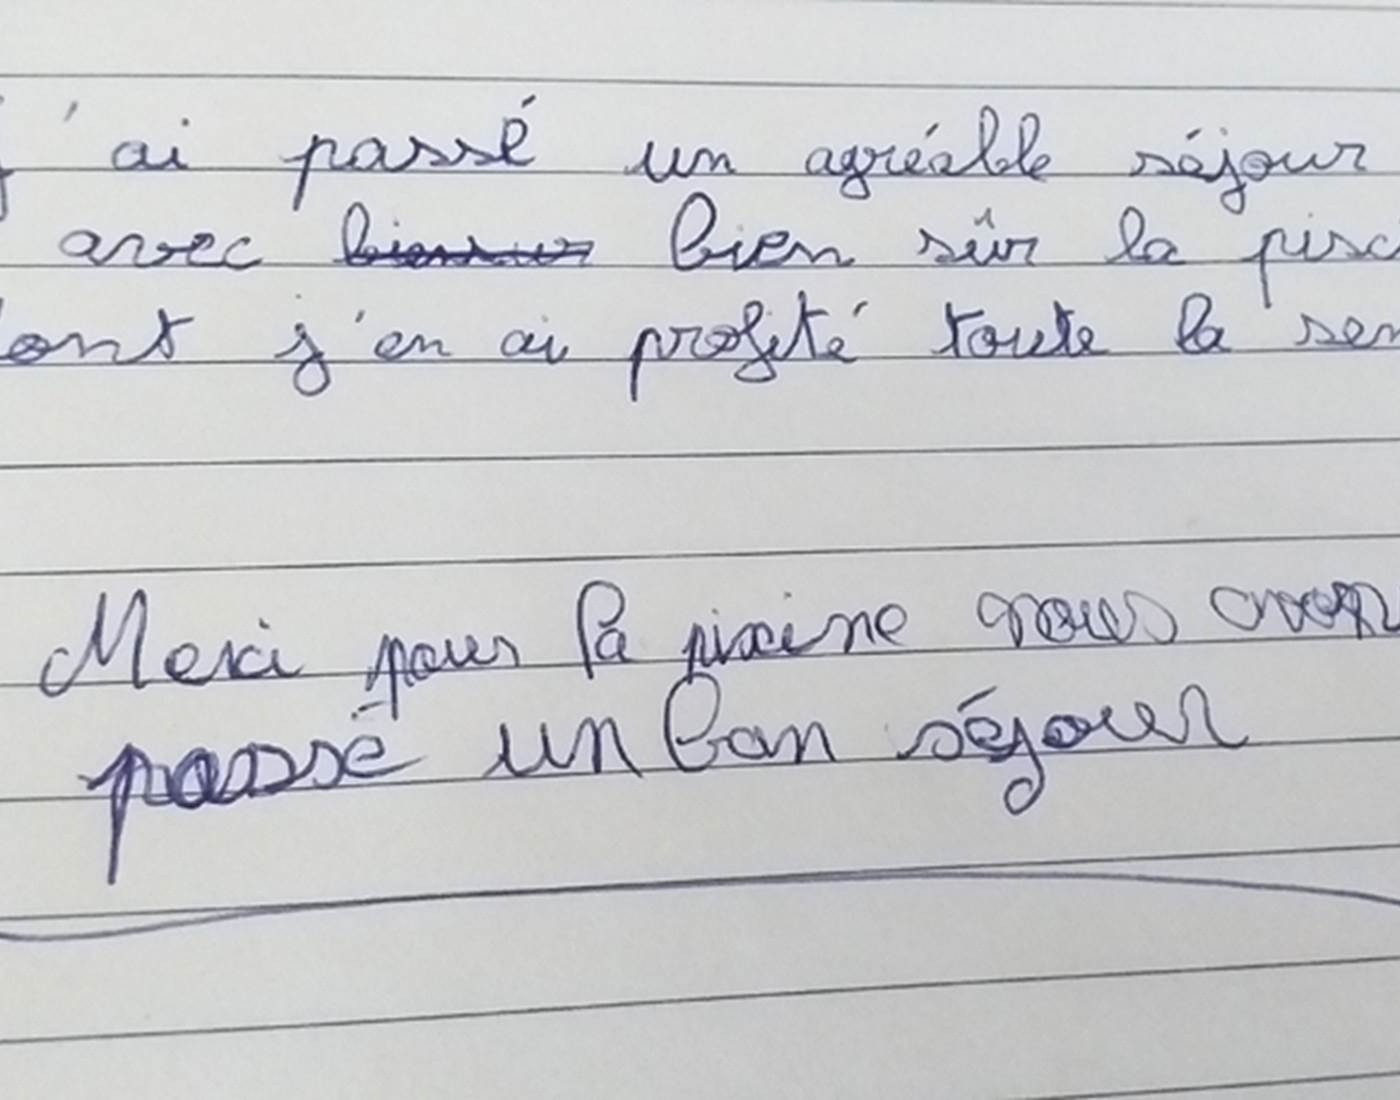 j'ai passé un agréable séjour
avec bien sûr la pisc
dont j'en ai profité toute la sem
Merci pour la piscine nous avons
passé un bon séjour